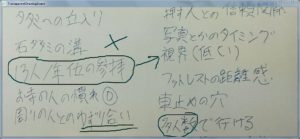 タタミへの立入り
石ダタミの溝
13人/年位の参拝
お寺の人の慣れ
周りの人とのゆずり合い
押す人との信頼関係
写真とかのタイミング
視界(低くい)
フットレストの距離感
車止めの穴
多人数で行ける